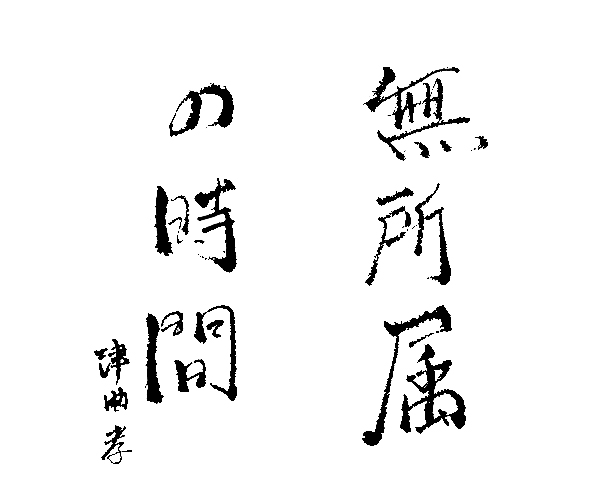 無所属
の時間
津曲孝